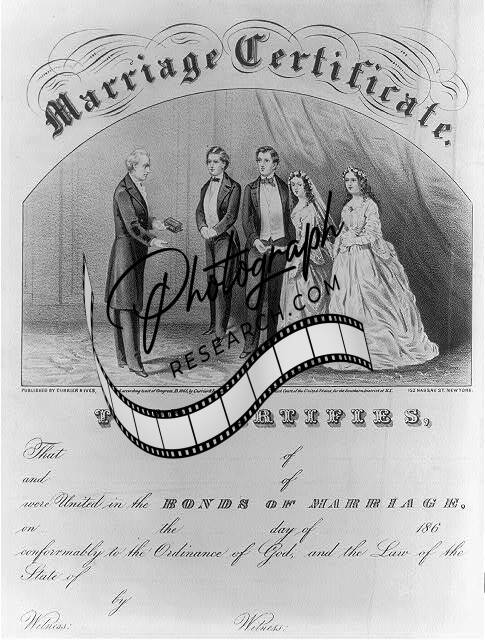 Marriage Certificate.
Photograph
RESEARCH.COM
PUBLISHED BY CURRIER & IVES, according to act of Congress, by Currier of the United States, for the Southern district of N.Y. 152 NASSAU ST. NEW YORK.
T RTIFIES,
That of
and of
were United in the BONDS OF MARRIAGE,
on the day of 186
conformably to the Ordinance of God, and the Law of the
State of
by
Witness: Witness: